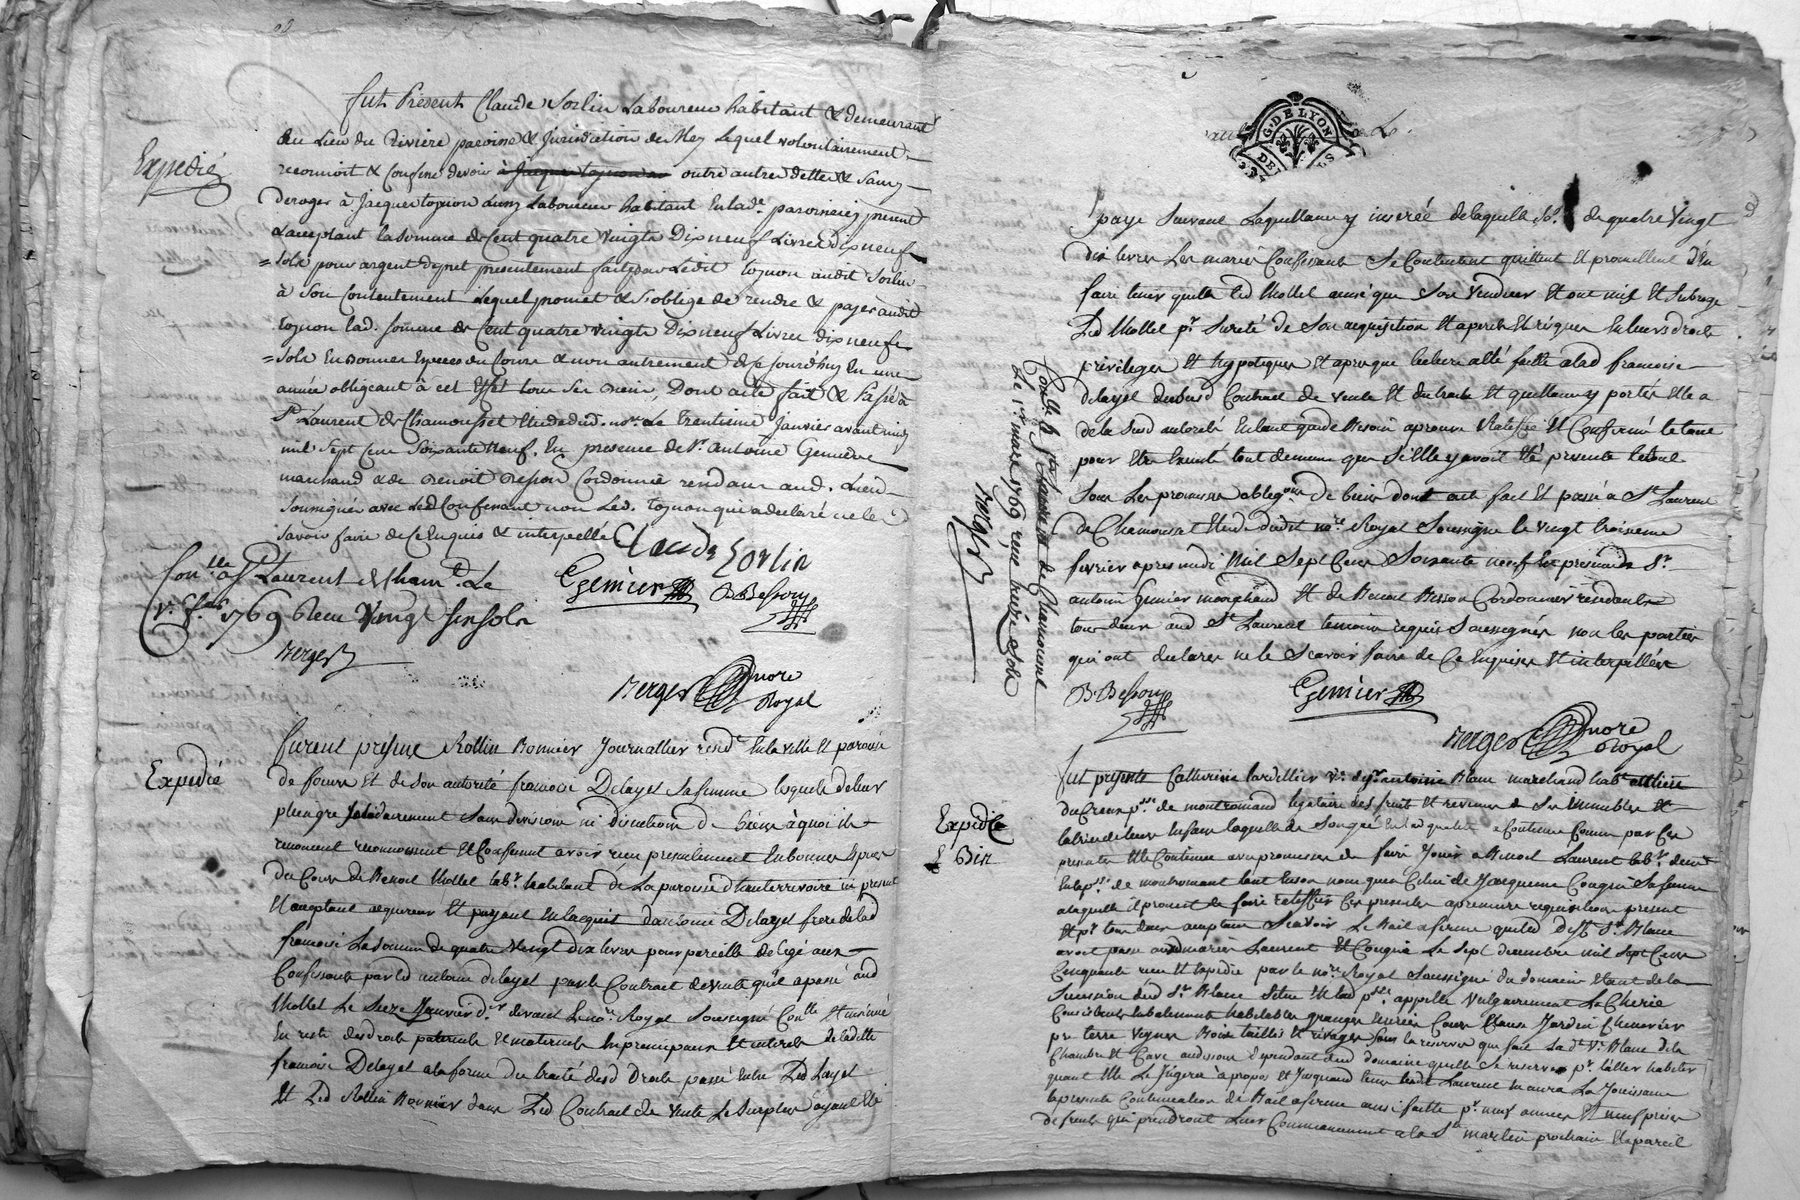 Fut Présent Claude Sorlin Laboureur habitant & demeurant
au Lieu du Riviere paroisse & Jurisdiction de Mey Lequel volontairement
reconnoit & Confesse devoir à Jacques tognon outre autres dettes & sans
deroger à Jacques tognon Laboureur habitant En lad. paroisse present
& acceptant la somme de Cent quatre Vingts Dix neuf Livres Dix neuf
sols pour argent depret presentement fait par Ledit tognon audit Sorlin
à Son Contentement Lequel promet & S'oblige de rendre & payer audit
tognon lad. somme de Cent quatre vingts Dix neuf Livres dix neufs
sols En Bonnes Especes du Cours & non autrement de Ce jourd'huy En une
année obligeant à cet Effet tous Ses Biens, Dont acte fait & Passé à
St Laurent de Chamousset Etude dud. nore Le trentieme Janvier avant midy
mil Sept Cens Soixante Neuf. En presence de Sr Antoine Genier
marchand & de Benoit Besson Cordonnier rendant aud. Lieu
soussignés avec Led Confessant non Led. tognon qui a declaré ne le
savoir faire de Ce Enquis & interpellé
Claude Sorlin
Expedié
Conlle a St Laurent de Cham. Le
1769 Recu Vingt six sols
Berger
Genier
B. Besson
Berger nore
Royal
Furent presens Rollin Bonnier Journallier resid. En la ville Et paroisse
Expedié
de feurs Et de Son autorité francoise Delayel Sa femme lesquels de leur
plein gré Solidairement Sans division ni discution de biens à quoi ils
renoncent reconnoissent Et Confessent avoir reçu presentement En bonnes Especes
du Cours de Benoit Mollet labr habitant de La paroisse d'hauterivoire ici present
Et acceptant acquereur Et payant En l'acquis d'antoine Delayel frere de lad
francoise La Somme de quatre Vingt dix livres pour pareille deleguée aux
Confessants par led antoine delayel par le Contract de vente qu'il a passé aud
Mollet Le Seize Janvier der devant Le nore Royal Soussigné Conlle Et insinué
En reste desd droits paternels Et maternels En principaux Et interets de ladite
francoise Delayel a la forme du traité desd Droits passé Entre Led Layel
Et Led Rollin Bonnier dans Led Contract de Vente Le Surplus ayant Eté
G. DE LYON
payé Suivant La quittance y inserée de laquelle So. de quatre Vingt
dix livres Les mariés Confessants Se Contentent quittent Et promettent d'En
faire tenir quitte led Mollet ainsi que Son Vendeur Et ont mis Et Subrogé
Led Mollet pr Sureté de Son acquisition Et a perils Et risques En leurs droits
privileges Et hypoteques Et apres que lecture a Eté faitte a lad francoise
delayel dudusd Contract de vente Et du traité Et quittance y portés Elle a
de la Susd autorité En tant que de Besoin aprouvé Ratiffié Et Confirmé le tout
pour Etre Executé tout de meme que Si Elle y avoit Eté presente Le tout
Sous Les promesses obligons de biens dont acte fait Et passé a St Laurent
de Chamousset Etude dudit nore Royal Soussigné le vingt troisieme
fevrier apres midi Mil Sept Cens Soixante neuf En presence de Sr
antoine Genier marchand Et de Benoit Besson Cordonnier residents
tous deux aud St Laurent temoins requis Soussignés non les parties
qui ont declarés ne le Scavoir faire de Ce Enquises Et interpellées
Conlle a St Laurent de Chamousset
Le 1er mars 1769 recu treize sols
Berger
B. Besson
Genier
Berger nore
Royal
Fut presente Catherine Vardellier Ve de Sr antoine Blanc marchand habt
Expedié
E Bis
du Creux psse de montromand legataire des fruits Et revenus de Ses immeubles Et
presentes Elle Continue avec promesse de faire Jouir a Benoit Laurent labr demt
En lad psse de montromant tant En son nom que Celui de Jacqueme Cougni Sa femme
a laquelle il promet de faire ratiffier Ces presentes a premiere requisition present
Et pr tous deux acceptant Scavoir Le Bail a ferme que led defft Sr Blanc
avoit passé auxd mariés Laurent Et Cougni Le Sept decembre mil Sept Cens
Cinquante recu Et Expedié par le nore Royal Soussigné du domaine Etant de la
Succession dud Sr Blanc Situé En lad psse appellé Vulgairement Le Cherie
Consistant En batiments habitables granges Ecuries Cour Clause Jardin Chenevier
pre terre Vignes Bois taillis Et rivages Sous la reserve que fait La de Ve Blanc de la
Chambre Et Cave audessous dependant dud domaine qu'elle Se reserve pr l'aller habiter
quant Elle Le Jugera à propos Et Jusquand Lesd Laurent aura La Jouissance
la presente Continuation de Bail a ferme ainsi faitte pr neuf années Et neuf prises
de fruits qui prendront Leur Commencement a la St martin prochain Et pareil